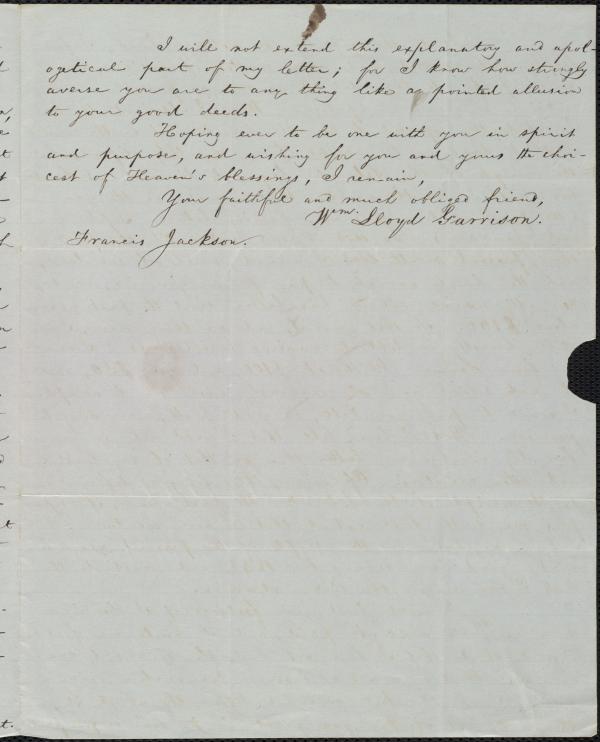 I will not extend this explanatory and apol-
ogetical part of my letter; for I know how strongly
averse you are to any thing like a pointed allusion
to your good deeds.
Hoping ever to be one with you in spirit
and purpose, and wishing for you and yours the choi-
cest of Heaven's blessings, I remain,
Your faithful and much obliged friend,
Wm. Lloyd Garrison.
Francis Jackson.